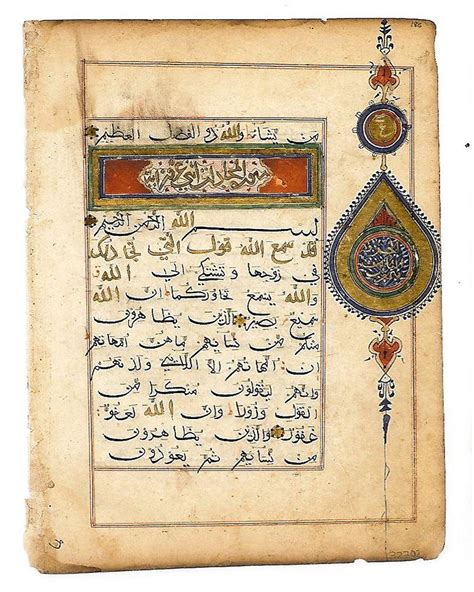 من يشاء والله ذو الفضل العظيم
سورة المجادلة
بسم الله الرحمن الرحيم
قد سمع الله قول التي تجادلك
في زوجها وتشتكي الى الله
والله يسمع تحاوركما ان الله
سميع بصير الذين يظاهرون
منكم من نسائهم ما هن امهاتهم
ان امهاتهم الا اللائي ولدنهم
وانهم ليقولون منكرا من
القول وزورا وان الله لعفو
غفور والذين يظاهرون
من نسائهم ثم يعودون